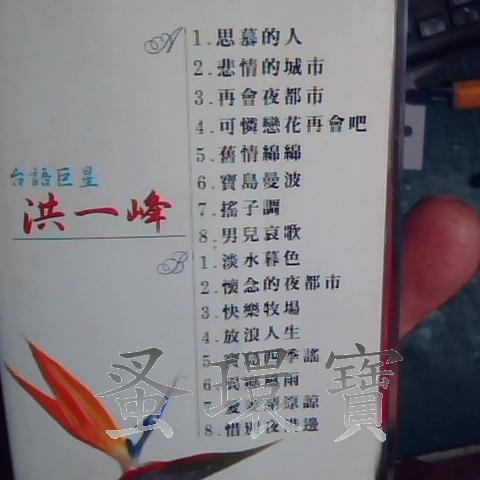 台語巨星
洪一峰
A
1.思慕的人
2.悲情的城市
3.再會夜都市
4.可憐戀花再會吧
5.舊情綿綿
6.寶島曼波
7.搖子調
8.男兒哀歌
B
1.淡水暮色
2.懷念的夜都市
3.快樂牧場
4.放浪人生
5.寶島四季謠
6.風雨
7.愛原諒
8.惜別夜港邊
蚤環寶